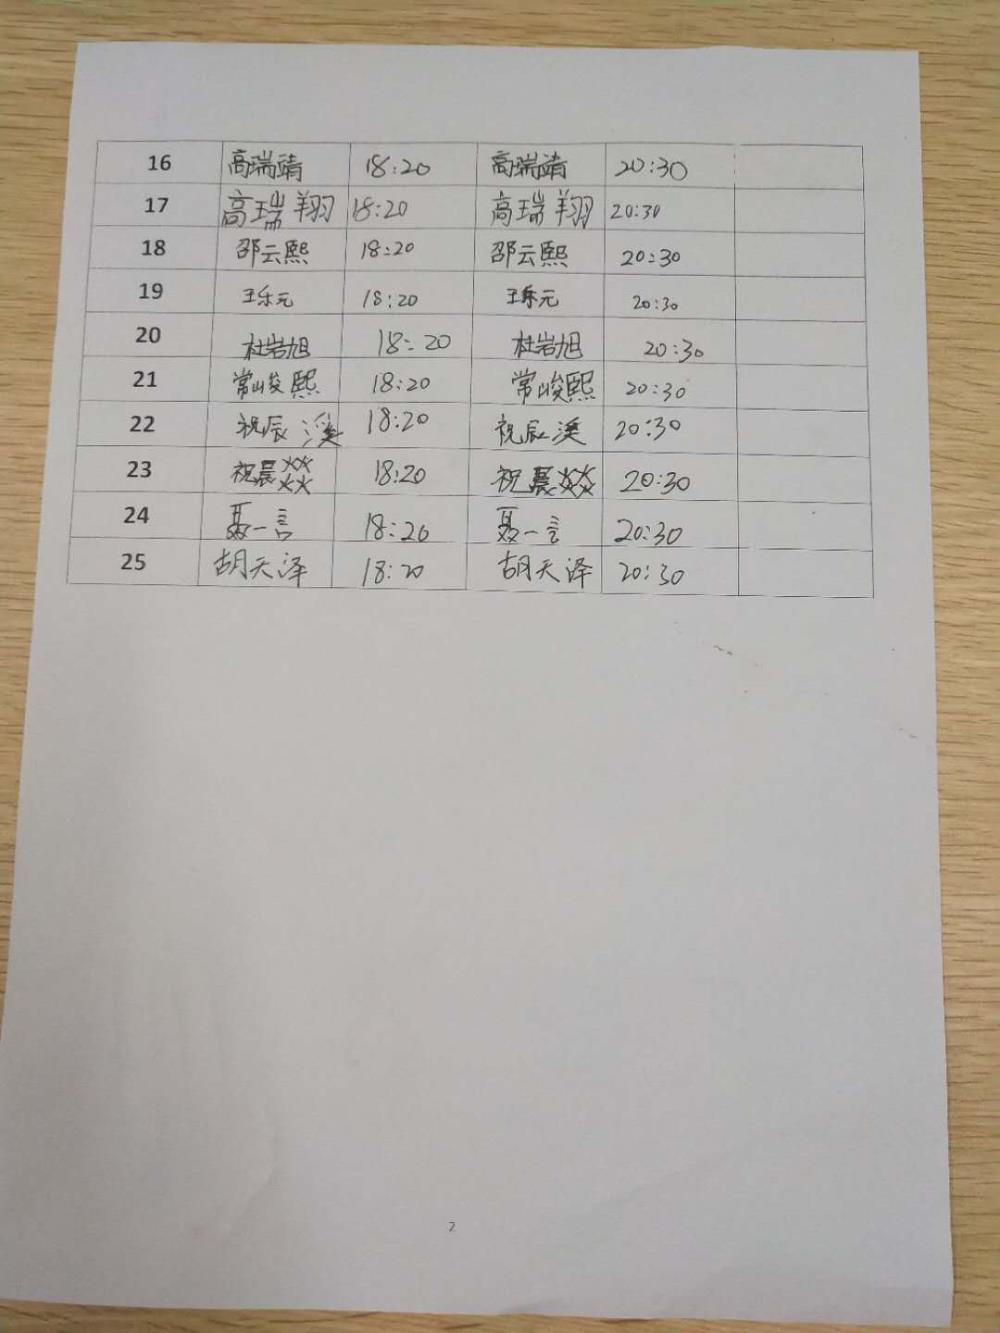 16 高瑞靖 18:20 高瑞靖 20:30
17 高瑞翔 18:20 高瑞翔 20:30
18 邵云熙 18:20 邵云熙 20:30
19 王乐元 18:20 王乐元 20:30
20 杜岩旭 18:20 杜岩旭 20:30
21 常峻熙 18:20 常峻熙 20:30
22 祝辰溪 18:20 祝辰溪 20:30
23 祝晨燚 18:20 祝晨燚 20:30
24 聂一言 18:20 聂一言 20:30
25 胡天泽 18:20 胡天泽 20:30
2